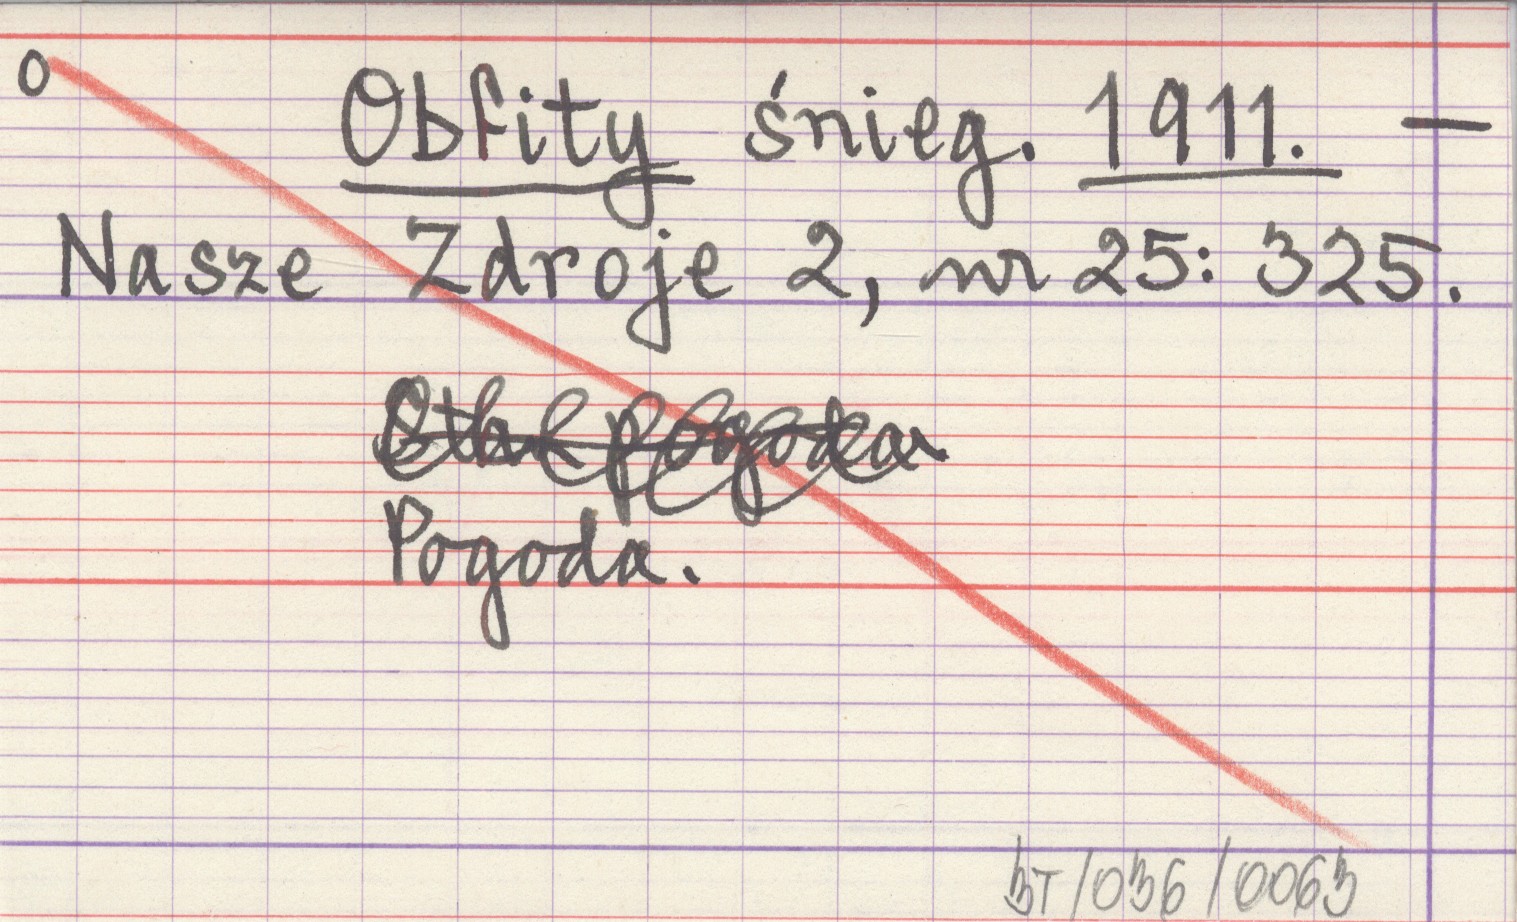 O
Obfity śnieg. 1911. —
Nasze Zdroje 2, nr 25: 325.
Pogoda.
BT/036/0063